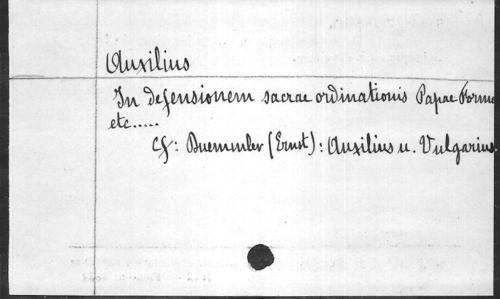 Auxilius
In defensionem sacrae ordinationis Papae Formo
etc.....
Cf: Duemmler (Ernst): Auxilius u. Vulgarius.